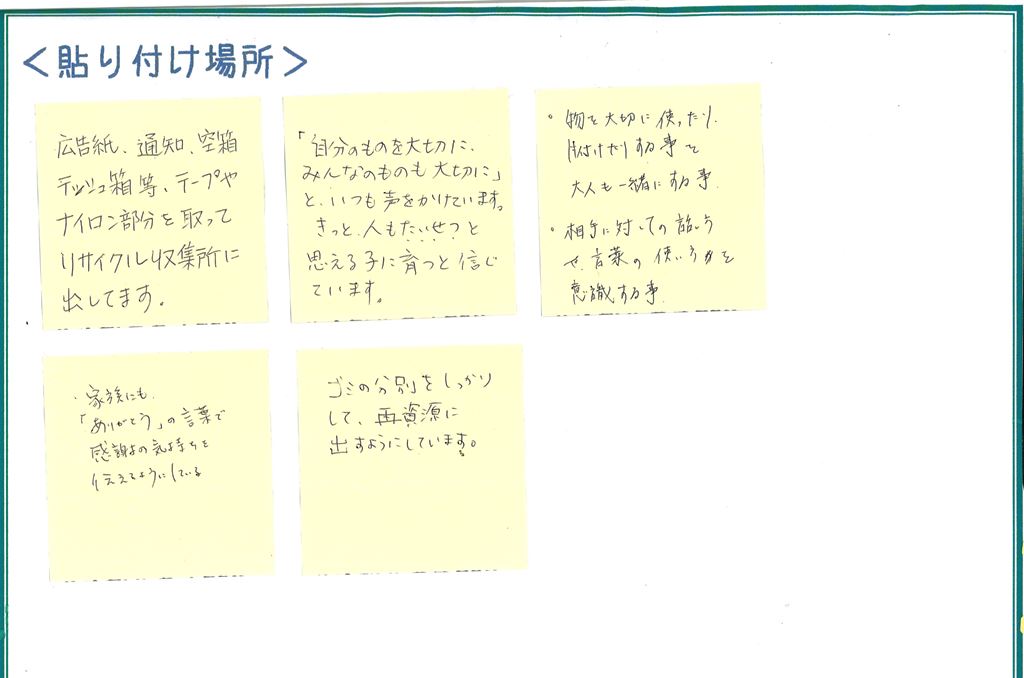 ＜貼り付け場所＞
広告紙、通知、空箱
テッシュ箱等、テープや
ナイロン部分を取って
リサイクル収集所に
出してます。
「自分のものを大切に、
みんなのものも大切に」
と、いつも声をかけています。
きっと、人もたいせつと
思える子に育つと信じ
ています。
・物を大切に使ったり、
片付けたりする事を
大人も一緒にする事
・相手に対しての話し方
や、言葉の使い方を
意識する事
・家族にも
「ありがとう」の言葉で
感謝の気持ちを
伝えるようにしている
ゴミの分別をしっかり
して、再資源に
出すようにしています。